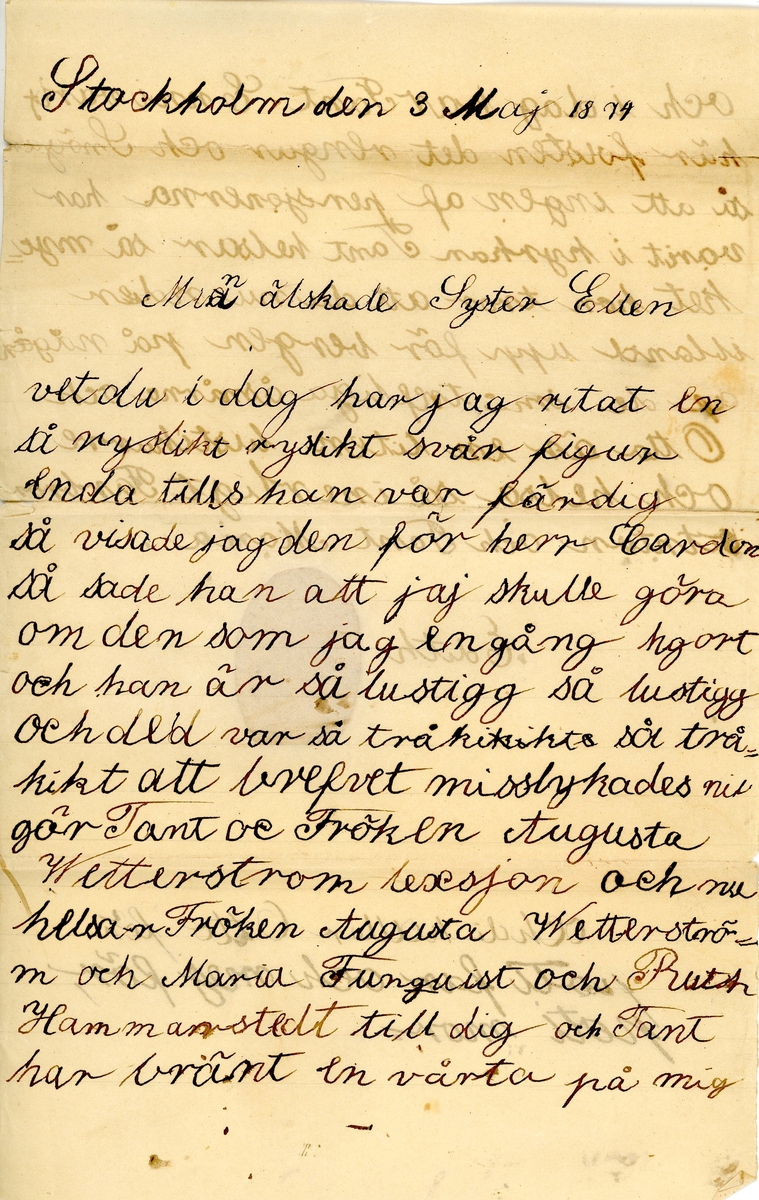 Stockholm den 3 Maj 1874
Min älskade Syster Ellen
vet du i dag har jag ritat en
så rysligt ryslikt svår figur
enda tills han var färdig
så visade jag den för herr Cardon
så sade han att jaj skulle göra
om den som jag en gång hgort
och han är så lustigg så lustigg
och ded var så tråkikikte så trå-
kikt att brefvet misslykades nu
gör Tant oc Fröken Augusta
Wetterstrom lexsjon och nu
helsar Fröken Augusta Wetterströ=
m och Maria Funquist och Ruth
Hammarstedt till dig och Tant
har bränt en vårta på mig